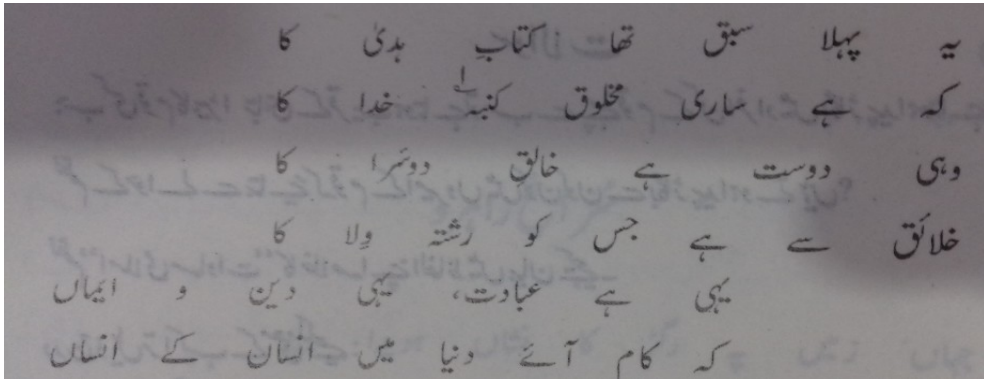 یہ پہلا سبق تھا کتابِ ہدیٰ کا
کہ ہے ساری مخلوق کنبہ خدا کا
وہی دوست ہے خالقِ دوسَرا کا
خلائق سے ہے جس کو رشتہ وِلا کا
یہی ہے عبادت، یہی دین و ایماں
کہ کام آئے دنیا میں انسان کے انساں